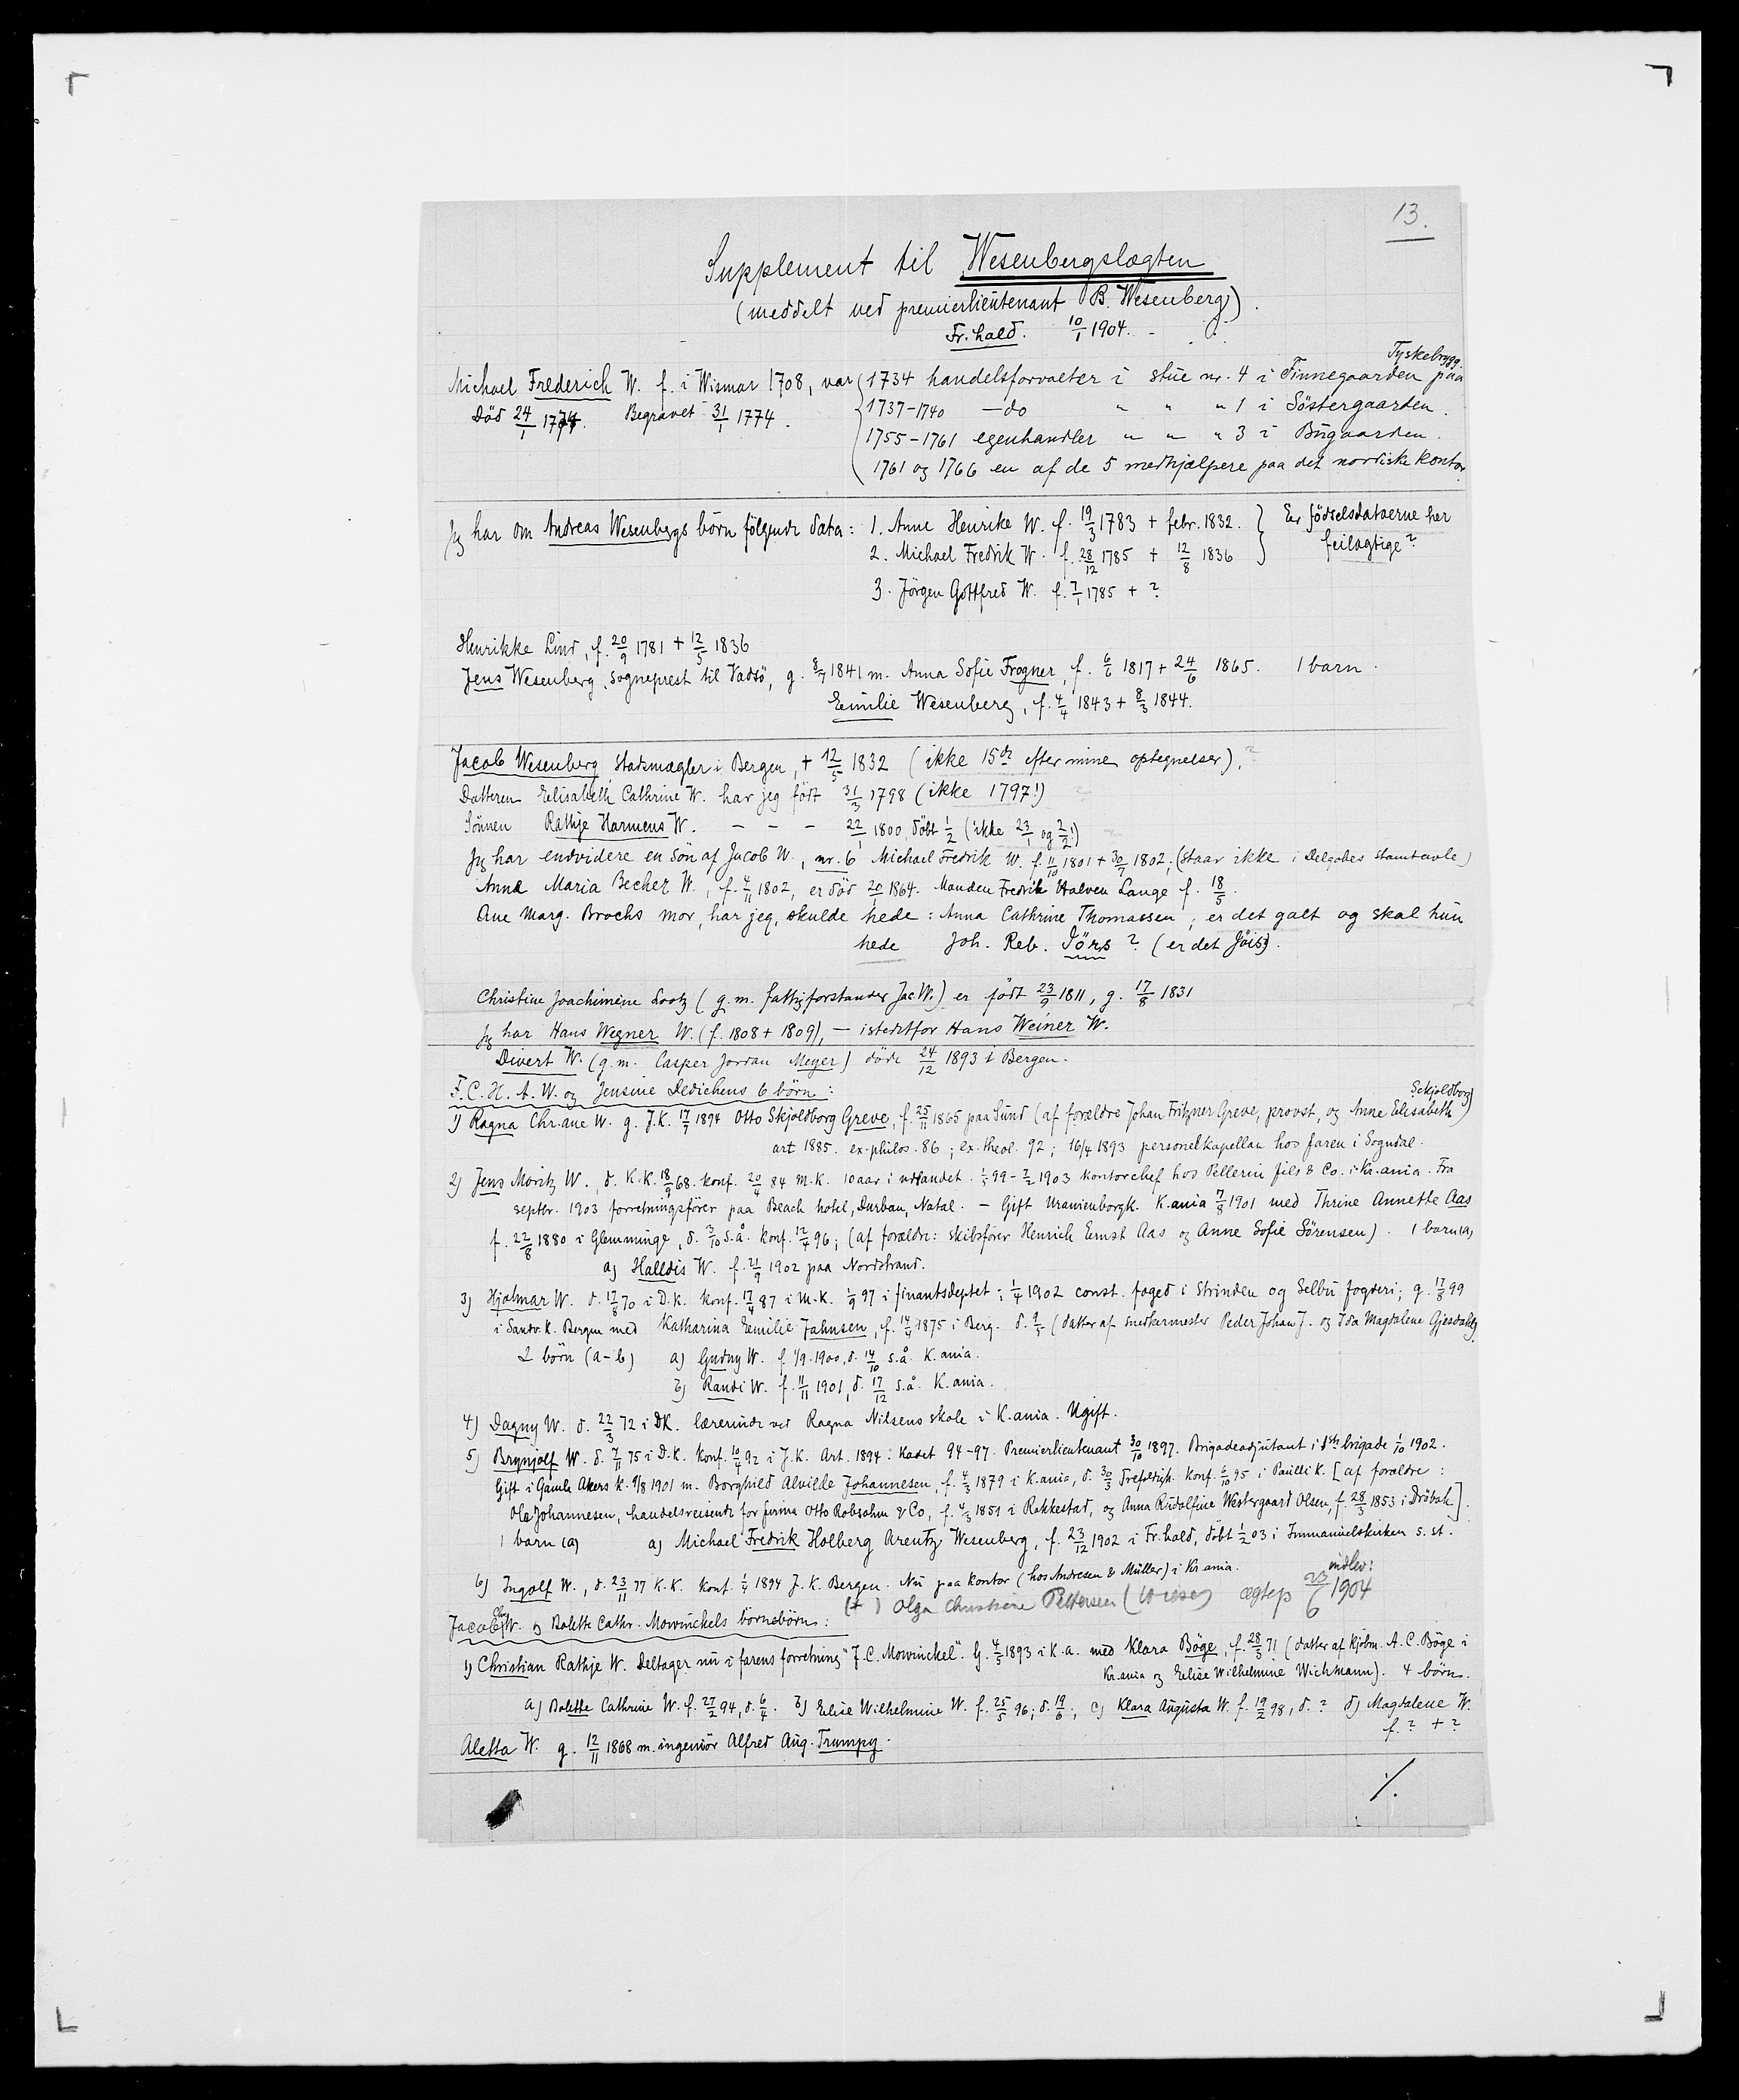 13.
Supplement til Wesenbergslægten
(meddelt ved premierlieutenant B. Wesenberg).
Fr.hald. 10/1 1904.
Tyskebrygg.
Michael Frederich W. f. i Wismar 1708, var 1734 handelsforvalter i stue nr. 4 i Finnegaarden paa
Död 24/1 1774. Begravet 31/1 1774. 1737-1740 —do „ „ „ 1 i Söstergaarden.
1755-1761 egenhandler „ „ „ 3 i Bugaarden.
1761 og 1766 en af de 5 medhjælpere paa det nordiske kontor.
Jeg har om Andreas Wesenbergs börn fölgende data: 1. Anne Henrike W. f. 19/3 1783 + febr. 1832. } Er födselsdataerne her
2. Michael Fredrik W. f. 28/12 1785 + 12/8 1836 } feilagtige?
3. Jörgen Gottfred W. f. 7/1 1785 + ?
Henrikke Lind, f. 20/9 1781 + 12/5 1836
Jens Wesenberg, sogneprest til Vadsö, g. 8/7 1841 m. Anna Sofie Frogner, f. 6/6 1817 + 24/6 1865. 1 barn.
Emilie Wesenberg, f. 4/4 1843 + 8/3 1844.
Jacob Wesenberg stadsmægler i Bergen, + 12/5 1832 (ikke 15de efter mine optegnelser). ?
Datteren Elisabeth Cathrine W. har jeg födt 31/3 1798 (ikke 1797!)
Sönnen Rathje Harmens W. — — — 22/1 1800, döbt 1/2 (ikke 23/1 og 2/2!)
Jeg har endvidere en sön af Jacob W., nr. 6 Michael Fredrik W. f. 11/10 1801 + 30/7 1802; (staar ikke i Delgobes stamtavle)
Anna Maria Becher W., f. 4/11 1802, er död 20/1 1864. Manden Fredrik Halven Lange f. 18/5.
Ane Marg. Brochs mor, har jeg, skulde hede: Anna Cathrine Thomassen; er det galt og skal hun
hede Joh. Reb. Jörs? (er det Jöis?).
Christine Joachimine Lootz (g.m. fattigforstander Jac. W.) er födt 23/9 1811, g. 17/8 1831
Jeg har Hans Wegner W. (f. 1808 + 1809), — istedetfor Hans Weiner W.
Divert W. (g.m. Casper Jordan Meyer) döde 24/12 1893 i Bergen.
F. C. H. A. W. og Jensine Dedichens 6 börn:
Schjoldborg
1) Ragna Chr.ane W. g. J.K. 17/7 1894 Otto Skjoldborg Greve, f. 25/11 1865 paa Sund (af forældre Johan Fritzner Greve, provst, og Anne Elisabeth)
art 1885. ex.philos. 86; ex. theol. 92; 16/4 1893 personelkapellan hos faren i Sogndal.
2) Jens Moritz W., d. K.K. 18/9 68. konf. 20/4 84 M.K. 10 aar i udlandet. 99 - 7/2 1903 kontorchef hos Pellerin fils & Co. i Kr.ania. Fra
septbr. 1903 forretningsförer paa Beach hotel, Durban, Natal. — Gift Uranienborgk. K.ania 7/8 1901 med Thrine Annette Aas
f. 22/8 1880 i Glemminge, d. 3/10 s.å. konf. 12/4 96; (af forældre: skibsförer Henrich Ernst Aas og Anne Sofie Sörensen). 1 barn (a)
a) Halldis W. f. 21/9 1902 paa Nordstrand.
3) Hjalmar W. d. 17/8 70 i D.K. konf. 17/4 87 i M.K. 1/9 97 i finantsdeptet; 1/4 1902 const. foged i Strinden og Selbu fogderi; g. 17/8 99
i Sandv.k. Bergen med Katharina Emilie Jahnsen, f. 14/4 1875 i Berg. d. 9/5 (datter af snedkermester Peder Johan J. og Ida Magdalene Gjesdahl).
2 börn (a-b) a) Gudny W. f. 1/9.1900, d. 14/10 s.å. K.ania.
b) Randi W. f. 11/11 1901, d. 17/12 s.å. K.ania.
4) Dagny W. d. 22/3 72 i DK. lærerinde ved Ragna Nilsens skole i K.ania. Ugift.
5) Brynjolf W. d. 7/11 75 i D.K. konf. 10/4 92 i J.K. Art. 1894. Kadet 94-97. Premierlieutenant 30/10 1897. Brigadeadjutant i 1ste brigade 1/10 1902.
Gift i Gamle Akers k. 9/8 1901 m. Borghild Alvilde Johannesen, f. 4/2 1879 i K.ania, d. 30/3 Trefoldigh. konf. 6/10 95 i Paulli K. [af forældre:
Ole Johannesen, handelsreisende for firma Otto Robsahm & Co, f. 4/3 1851 i Rakkestad, og Anna Rudolfine Westergaard Olsen, f. 28/3 1853 i Dröbak].
1 barn (a) a) Michael Fredrik Holberg Arentz Wesenberg, f. 23/12 1902 i Fr.hald, döbt 1/2 03 i Immanuelskirken s. st.
6) Ingolf W., d. 23/11 77 K.K. konf. 1/4 1894 J.K. Bergen. Nu paa kontor (hos Andresen & Müller) i Kr.ania.
indlev:
(+) Olga Christine Pettersen (Wiese) ægtesk 23/6 1904
Jacob Chr. W. og Bolette Cathr. Mowinckels börnebörn:
1) Christian Rathje W. Deltager nu i farens forretning "J.C. Mowinckel". G. 4/5 1893 i K.a. med Klara Böge, f. 28/3 71 (datter af kjöbm. A.C. Böge i
Kr.ania og Elise Wilhelmine Wichmann). 4 börn.
a) Bolette Cathrine W. f. 27/2 94, d. 6/4. b) Elise Wilhelmine W. f. 25/5 96; d. 19/6., c) Klara Augusta W. f. 19/2 98, d. ? d) Magdalene W.
f. ? + ?
Aletta W. g. 12/11 1868 m. ingeniör Alfred Aug. Trumpy.
%.